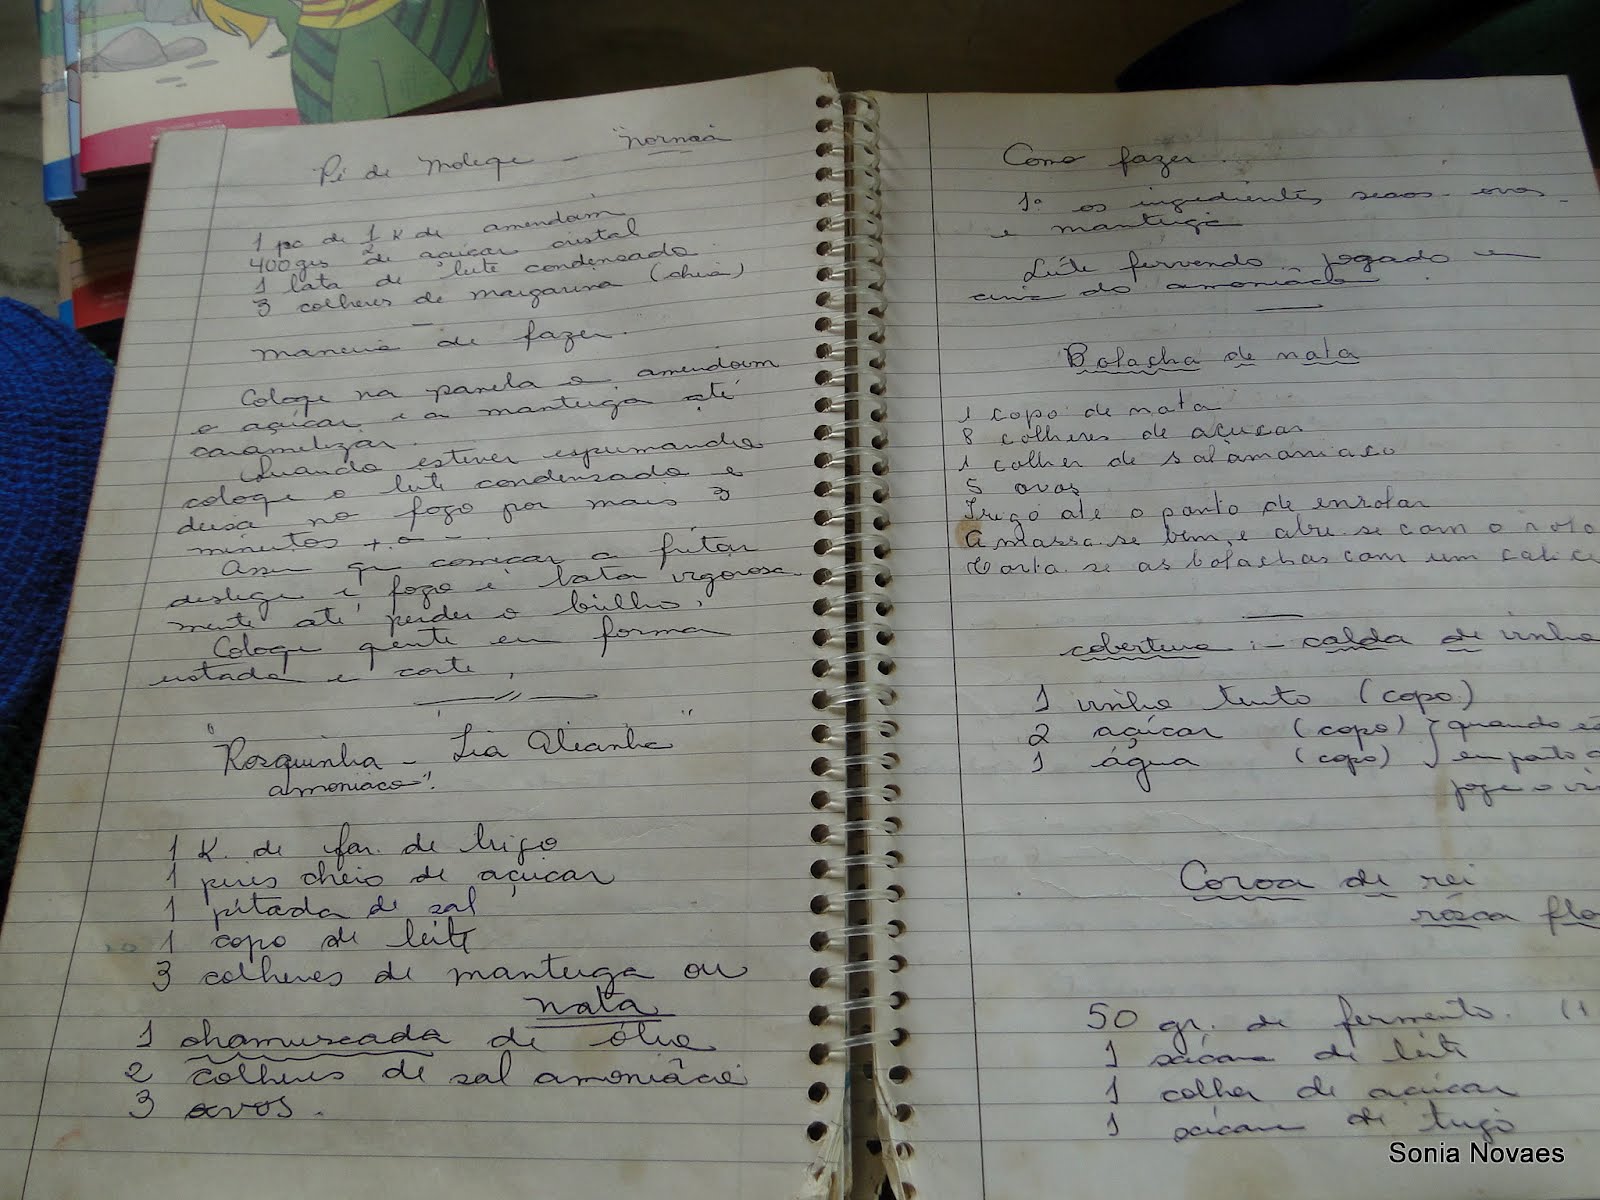 Pé de Moleqe - "Norma"
1 pc de 1/2 K de amendoim
400 grs de açúcar cristal
1 lata de leite condensado
3 colheres de margarina (cheia)
maneira de fazer.
Coloqe na panela o amendoim
o açúcar e a manteiga até
caramelizar.
Quando estiver espumando
coloqe o leite condensado e
deixa no fogo por mais 3
minutos + o -.
Assim qe começar a fritar
deslige o fogo e bata vigorosa-
mente até perder o brilho,
Coloqe qente em forma
untada e corte,
"Rosquinha - Lia Alianha"
amoniaco"!
1 K. de far. de trigo
1 pires cheio de açúcar
1 pitada de sal
1 copo de leite
3 colheres de manteiga ou
nata
1 chamuscada de óleo
2 colheres de sal amoniáco
3 ovos.
Como fazer.
1º os ingredientes secos - ovos -
e manteiga
Leite fervendo jogado em
cima do amoniáco
Bolacha de nata
1 copo de nata
8 colheres de açucar
1 colher de salamaniaco
5 ovos
Trigo até o ponto de enrolar
Amassa-se bem, e abre se com o rolo
Corta-se as bolachas com um calice
cobertura :- calda de vinho
1 vinho tinto (copo)
2 açúcar (copo) quando
1 água (copo) em ponto
joge o
Coroa de rei
rôsca
50 gr. de fermento. (1
1 xícara de leite
1 colher de açúcar
1 xícara de trigo
Sonia Novaes